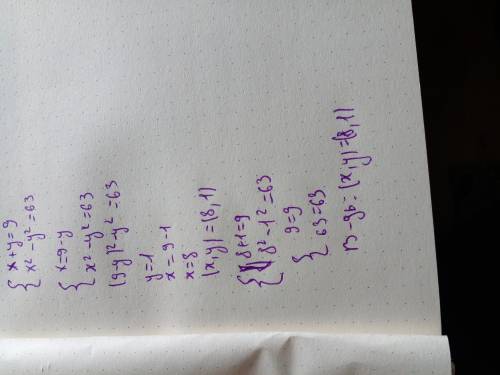 { x+y=9
x²-y²=63
{ x=9-y
x²-y²=63
(9-y)²-y²=63
y=1
x=9-1
x=8
(x,y)=(8,1)
{ 8+1=9
8²-1²=63
{ 9=9
63=63
(x,y)=(8,1)